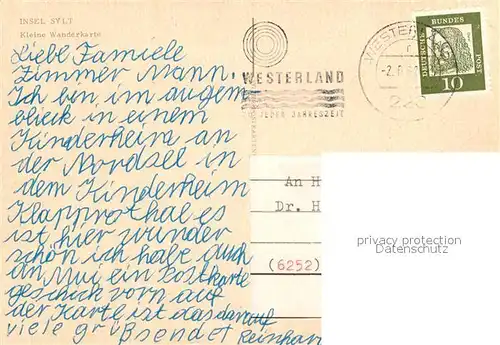 INSEL SYLT
Kleine Wanderkarte
Liebe Familie
Zimmer Mann.
Ich bin im augem
blick in einem
Kinderheim an
der Nordsee in
dem Kinderheim
Klappothal es
ist hier wunder
schön ich habe auch
an Mui ein Postkarte
geschick vorn auf
der Karte ist das darauf
viele grüß sendet Reinhar
WESTERLAND
JEDER JAHRESZEIT
WESTER
-2.6.6
228
DEUTSCHE BUNDES POST
10
An H
Dr. H
(6252)
privacy protection
Datenschutz